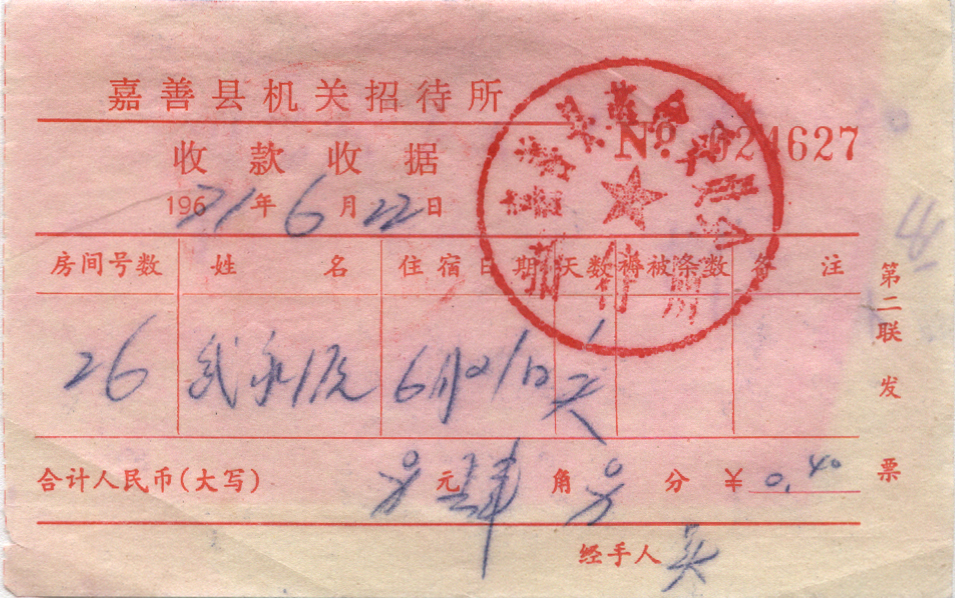 嘉善县机关招待所
No 024627
收款收据
196 71年6月22日
房间号数 姓名 住宿日期 天数 褥被条数 备注
26 武永 6月21日 1天
合计人民币(大写) 另元肆角另分 ¥0.40
经手人 吴
第二联 发票
嘉善县革命委员会
招待所